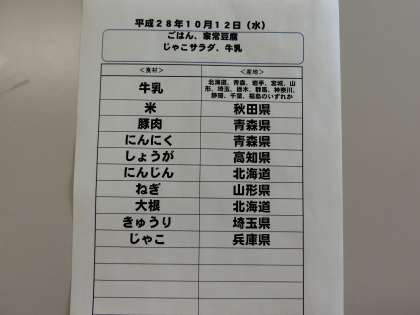 平成28年10月12日（水）
ごはん、家常豆腐
じゃこサラダ、牛乳
＜食材＞ ＜産地＞
牛乳 北海道、青森、岩手、宮城、山形、埼玉、栃木、群馬、神奈川、静岡、千葉、福島のいずれか
米 秋田県
豚肉 青森県
にんにく 青森県
しょうが 高知県
にんじん 北海道
ねぎ 山形県
大根 北海道
きゅうり 埼玉県
じゃこ 兵庫県